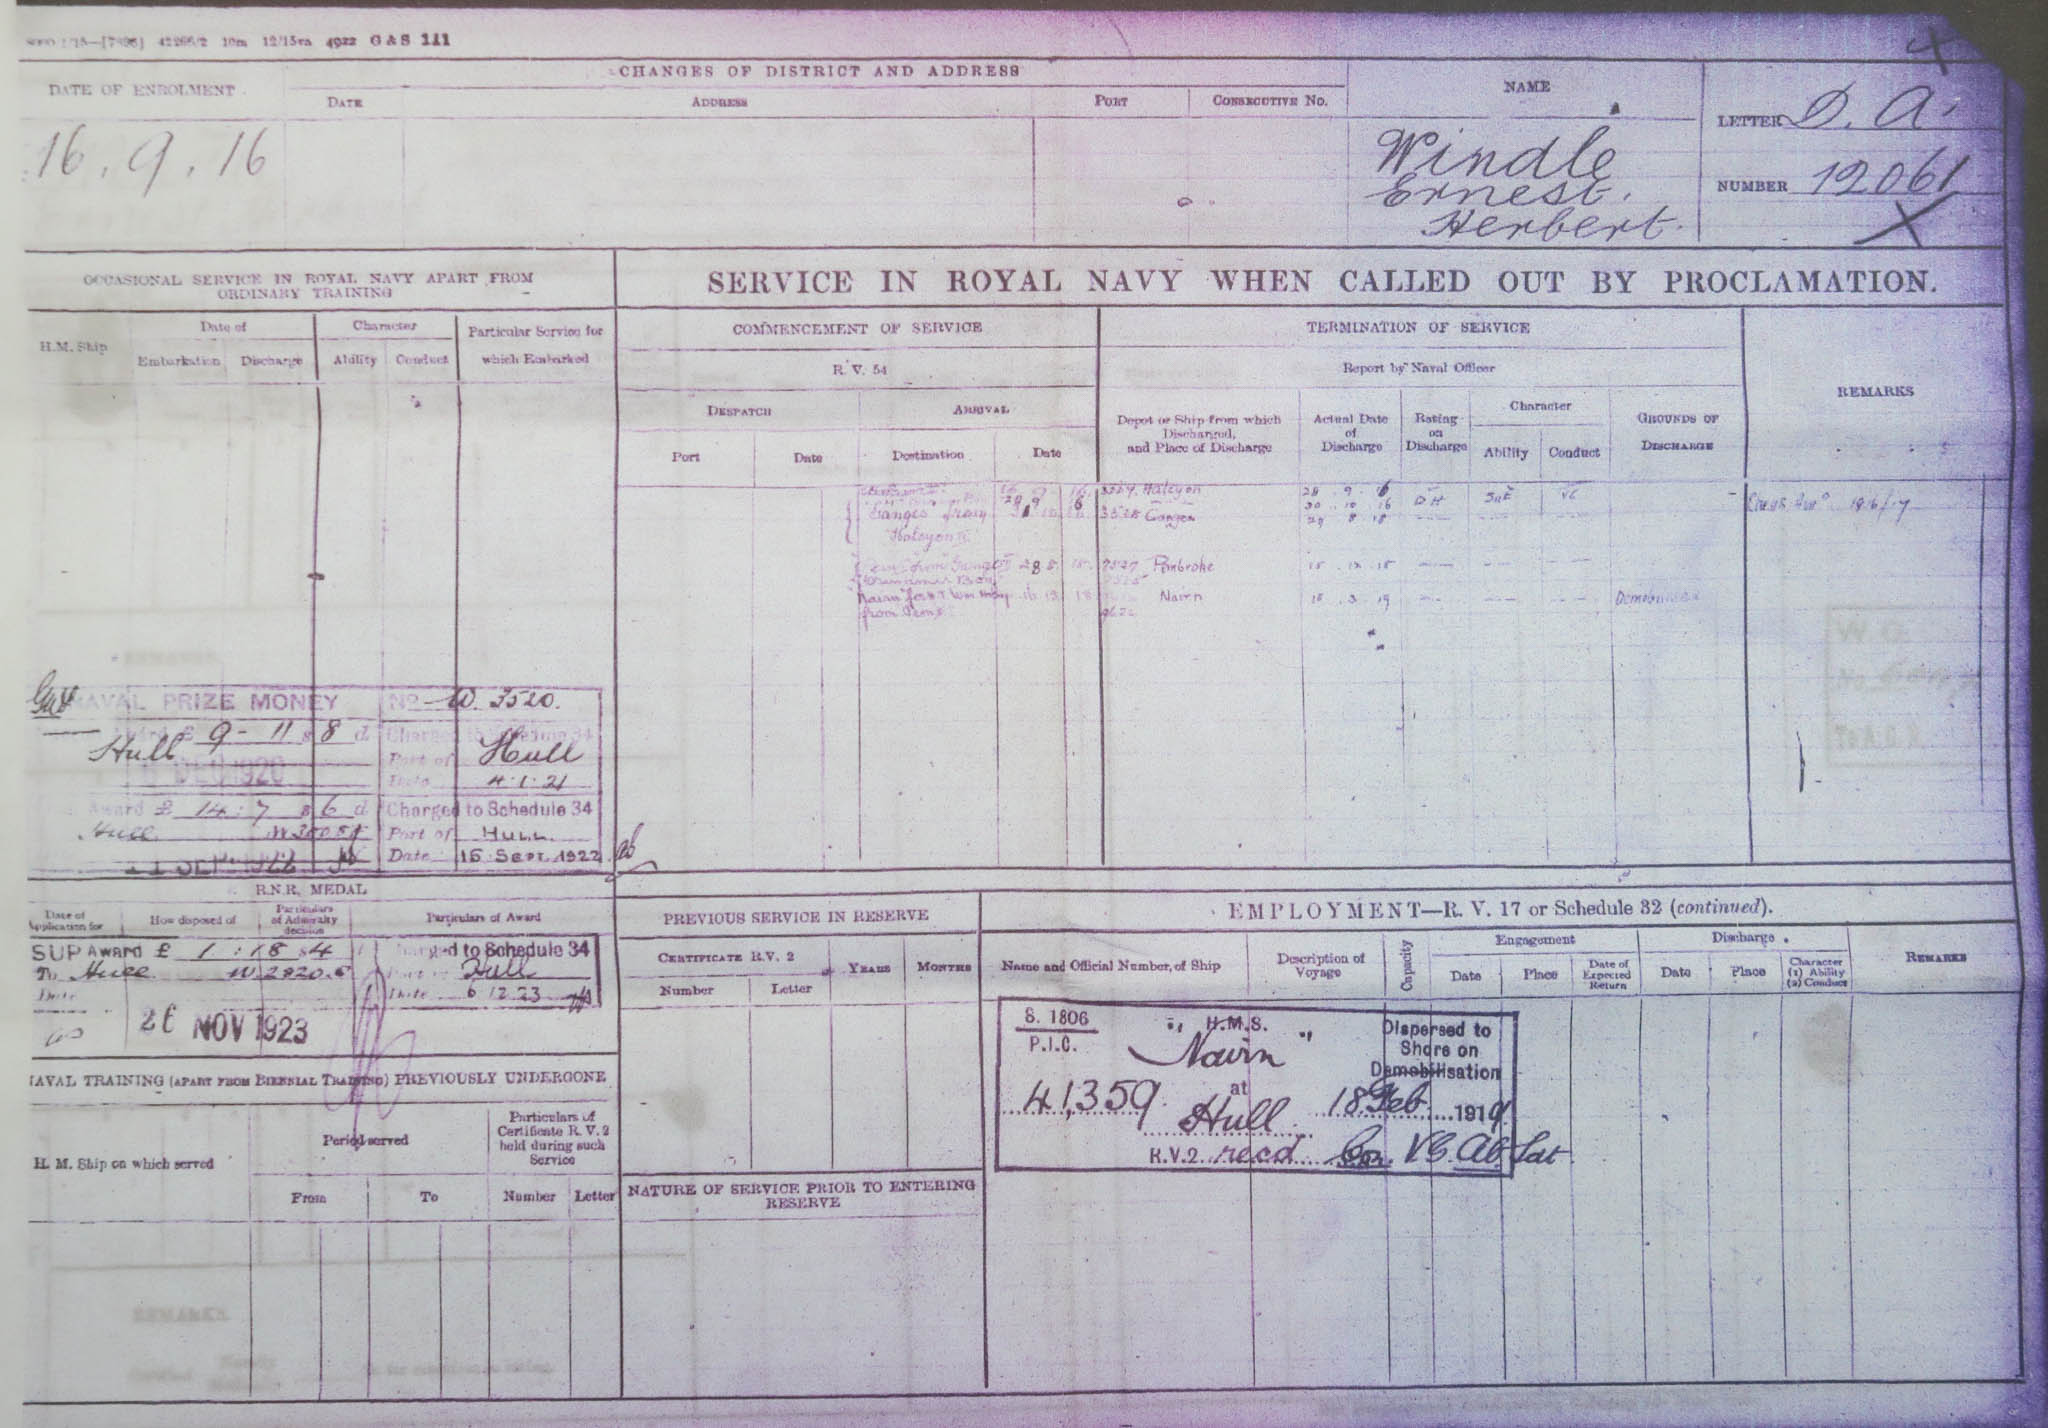 12/15va 4922 G & S 111
DATE OF ENROLMENT
16.9.16
CHANGES OF DISTRICT AND ADDRESS
DATE ADDRESS PORT CONSECUTIVE No.
NAME
Windle
Ernest.
Herbert.
LETTER D. A.
NUMBER 12061
OCCASIONAL SERVICE IN ROYAL NAVY APART FROM
ORDINARY TRAINING
H.M. Ship
Date of
Embarkation Discharge
Character
Ability Conduct
Particular Service for
which Embarked
SERVICE IN ROYAL NAVY WHEN CALLED OUT BY PROCLAMATION.
COMMENCEMENT OF SERVICE
R. V. 54
DESPATCH ARRIVAL
Port Date Destination Date
TERMINATION OF SERVICE
Report by Naval Officer
Depot or Ship from which
Discharged,
and Place of Discharge
Actual Date
of
Discharge
Rating
on
Discharge
Character
Ability Conduct
GROUNDS OF
DISCHARGE
REMARKS
Halcyon 28 . 9 . 16 DH Sat VG
Ganges from 3528 Ganges 30 . 10 16
Halcyon 29 8 18
28 8 18 Pembroke 15 . 12 . 18
Nairn 18 . 3 . 19 Demobilised
1916/17
NAVAL PRIZE MONEY
£ 9 - 11 s 8 d
Hull
DEC 1920
No W. 3520.
Charged to Schedule 34
Port of Hull
Date 4.1.21
Award £ 14 : 7 s 6 d
Hull
11 SEP 1922
Charged to Schedule 34
Port of HULL.
Date 15 Sept. 1922
R.N.R. MEDAL
Date of
Application for
How disposed of
Particulars
of Admiralty
decision
Particulars of Award
SUP Award £ 1 : 18 s 4
To Hull W 2820.
Date
26 NOV 1923
Charged to Schedule 34
Port of Hull
Date 6 12 23
NAVAL TRAINING (APART FROM BIENNIAL TRAINING) PREVIOUSLY UNDERGONE
H. M. Ship on which served
Period served
From To
Particulars of
Certificate R. V. 2
held during such
Service
Number Letter
PREVIOUS SERVICE IN RESERVE
CERTIFICATE R.V. 2 YEARS MONTHS
Number Letter
NATURE OF SERVICE PRIOR TO ENTERING
RESERVE
EMPLOYMENT—R. V. 17 or Schedule 32 (continued).
Name and Official Number, of Ship
Description of
Voyage
Capacity
Engagement
Date Place
Date of
Expected
Return
Discharge
Date Place
Character
(1) Ability
(2) Conduct
REMARKS
S. 1806
P.I.C.
"H.M.S.
Nairn"
Dispersed to
Shore on
Demobilisation
41,359 at Hull 18 Feb 1919
R.V.2 recd Con. VG Ab Sat